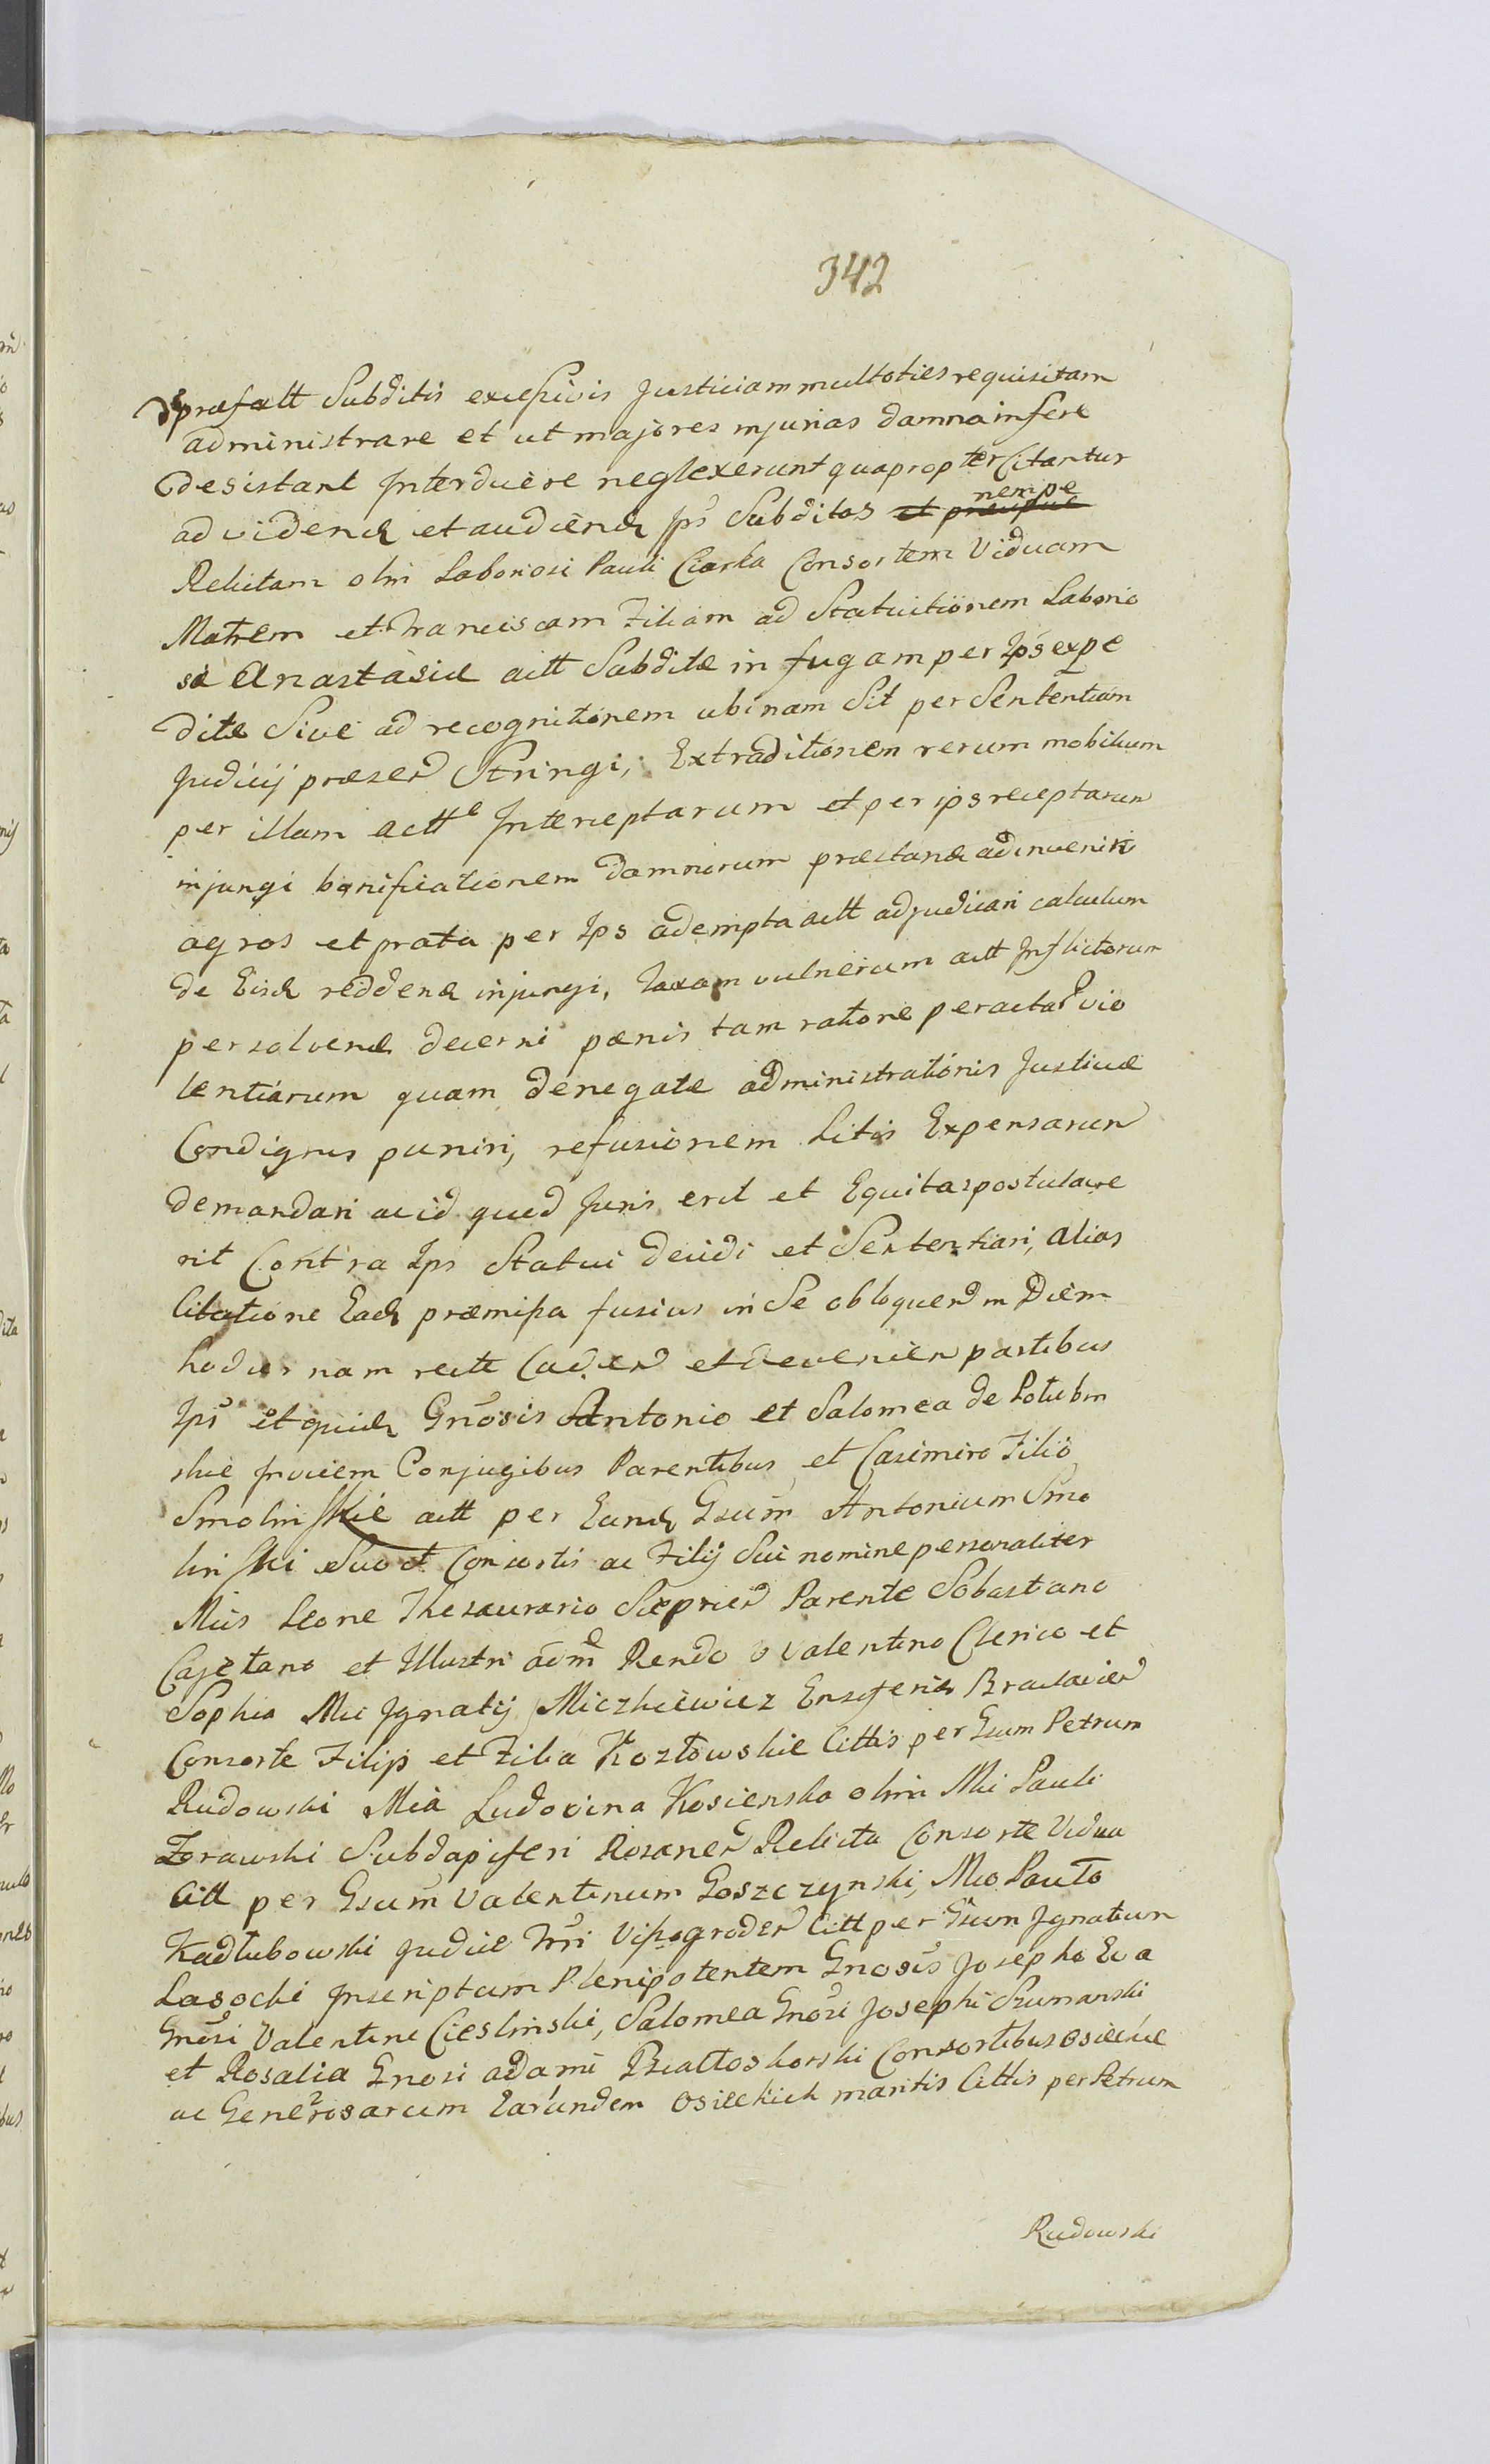 342
de præfatt Subditis excessivis Justiciam multoties requisitam
administrare et ut majores injurias damna infere
desistant Interducere neglexerunt quapropter Citantur
ad videnđ et audienđ Ips Subditos et præcipue nempe
Relictam olim Laboriosi Pauli Ciarka Consortem Viduam
Matrem et Franciscam Filiam ad Statuitionem Laborio
sæ Anastasiæ actt Subditæ in fugam per Ips expe
ditæ Sive ad recognitionem ubinam Sit per Sententiam
Judicij præsen Stringi, Extraditionem rerum mobilium
per illam actte Interceptarum et per ips receptarum
injungi bonificationem damnorum præstanđ adinveniri
agros et prata per Ips adempta actt adjudicari calculum
de Eisđ reddenđ injungi, Taxam vulnerum actt Inflictorum
persolvenđ decerni pænis tam ratione peractar vio
lentiarum quam denegatæ administrationis Justiciæ
Condignis puniri, refusionem Litis Expensarum
demandari ac id quod Juris erit et Equitas postulave
rit Contra Ips Statui decidi et Sententiari, alias
Citatione Eađ præmissa fusius in Se obloquen in Diem
hodiernam rectt Caden et devenien partibus
Ips et quidem Gnosis Antonio et Salomea de Potubin
skie invicem Conjugibus Parentibus et Casimiro Filio
Smolinskie actt per Eunđ Gsum Antonium Smo
linski Suo et Consortis ac Filij Sui nomine personaliter
Mcis Leone Thesaurario Sieprien Parente Sobastano
Cajetano et Illustri adm Rendo Valentino Clerico et
Sophia Mci Ignatij Miczkiewicz Ensiferis Braclavien
Consorte Filijs et Filia Kozłowskie Cittis per Gsum Petrum
Rudowski Mca Ludovina Kosienska olim Mci Pauli
Zorawski Subdapiferi Rosanen Relicta Consorte Vidua
Citt per Gsum Valentinum Goszczynski, Mco Paulo
Kadłubowski Judice Trri Vissegroden Citt per Gsum Ignatium
Lasocki Inscriptum Plenipotentem Gnosis Josepho Eva
Gnosi Valentini Cieslinski, Salomea Gnosi Josephi Szumanski
et Rosalia Gnosi Adami Białłoskorski Consortibus Osieckie
ac Generosarum Earundem Osieckich maritis Cittis per Petrum
Rudowski